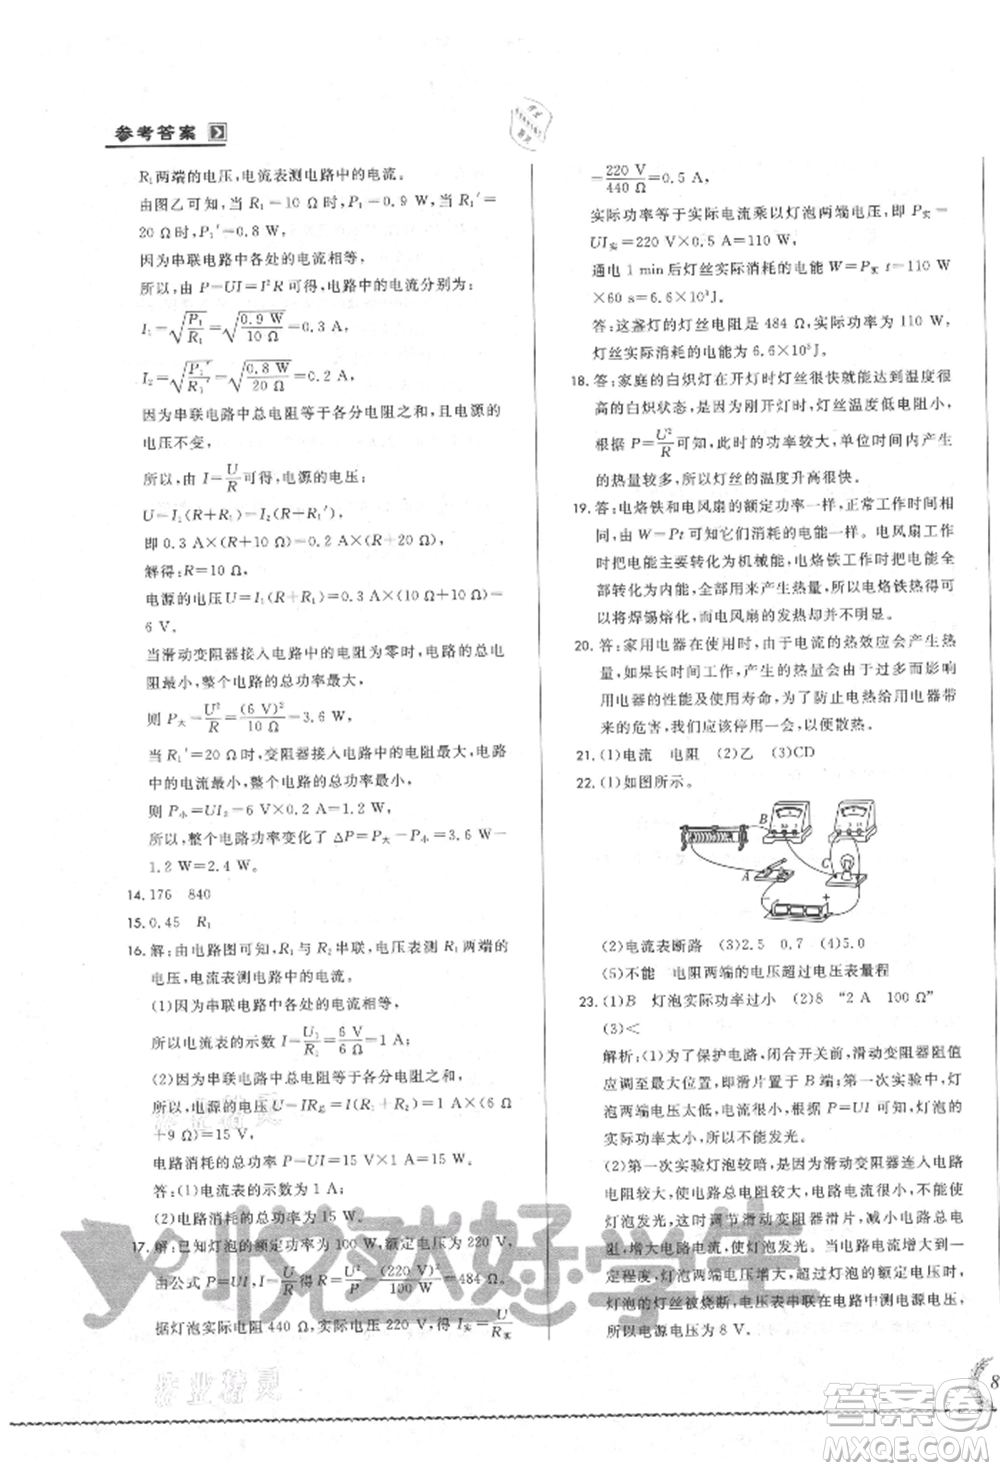 参考答案
R₁两端的电压,电流表测电路中的电流。
由图乙可知,当 R₁=10 Ω时,P₁=0.9 W,当 R₁′=
20 Ω时,P₁′=0.8 W,
因为串联电路中各处的电流相等,
所以,由 P=UI=I²R 可得,电路中的电流分别为:
I₁=√(P₁/R₁)=√(0.9 W/10 Ω)=0.3 A,
I₂=√(P₁′/R₁′)=√(0.8 W/20 Ω)=0.2 A,
因为串联电路中总电阻等于各分电阻之和,且电源的
电压不变,
所以,由 I=U/R 可得,电源的电压:
U=I₁(R+R₁)=I₂(R+R₁′),
即 0.3 A×(R+10 Ω)=0.2 A×(R+20 Ω)
解得:R=10 Ω,
电源的电压U=I₁(R+R₁)=0.3 A×(10 Ω+10 Ω)=
6 V。
当滑动变阻器接入电路中的电阻为零时,电路的总电
阻最小,整个电路的总功率最大,
则 P大=U²/R=(6 V)²/10 Ω=3.6 W,
当 R₁′=20 Ω时,变阻器接入电路中的电阻最大,电路
中的电流最小,整个电路的总功率最小,
则 P小=UI₂=6 V×0.2 A=1.2 W,
所以,整个电路功率变化了 ΔP=P大-P小=3.6 W-
1.2 W=2.4 W。
14. 176 840
15. 0.45 R₁
16. 解:由电路图可知,R₁与 R₂串联,电压表测 R₁两端的
电压,电流表测电路中的电流。
(1)因为串联电路中各处的电流相等,
所以电流表的示数 I=U₁/R₁=6 V/6 Ω=1 A;
(2)因为串联电路中总电阻等于各分电阻之和,
所以,电源的电压 U=IR总=I(R₁+R₂)=1 A×(6 Ω
+9 Ω)=15 V,
电路消耗的总功率 P=UI=15 V×1 A=15 W。
答:(1)电流表的示数为 1 A;
(2)电路消耗的总功率为 15 W。
17. 解:已知灯泡的额定功率为 100 W,额定电压为 220 V,
由公式 P=UI,I=U/R得 R=U²/P=(220 V)²/100 W=484 Ω;
据灯泡实际电阻 440 Ω,实际电压 220 V,得 I实=U/R实
=220 V/440 Ω=0.5 A,
实际功率等于实际电流乘以灯泡两端电压,即 P实=
UI实=220 V×0.5 A=110 W,
通电 1 min后灯丝实际消耗的电能 W=P实 t=110 W
×60 s=6.6×10³J。
答:这盏灯的灯丝电阻是 484 Ω,实际功率为 110 W,
灯丝实际消耗的电能 6.6×10³J。
18. 答:家庭的白炽灯在开灯时灯丝很快就能达到温度很
高的白炽状态,是因为刚开灯时,灯丝温度低电阻小,
根据 P=U²/R可知,此时的功率较大,单位时间内产生
的热量较多,所以灯丝的温度升高很快。
19. 答:电烙铁和电风扇的额定功率一样,正常工作时间相
同,由 W=Pt 可知它们消耗的电能一样。电风扇工作
时把电能主要转化为机械能,电烙铁工作时把电能全
部转化为内能,全部用来产生热量,所以电烙铁热得可
以将焊锡熔化,而电风扇的发热却并不明显。
20. 答:家用电器在使用时,由于电流的热效应会产生热
量,如果长时间工作,产生的热量会过多而影响
用电器的性能及使用寿命,为了防止电热给用电器带
来的危害,我们应该停用一会,以便散热。
21. (1)电流 电阻 (2)乙 (3)CD
22. (1)如图所示。
B
C
A
+
-
(2)电流表断路 (3)2.5 0.7 (4)5.0
(5)不能 电阻两端的电压超过电压表量程
23. (1)B 灯泡实际功率过小 (2)8 “2 A 100 Ω”
(3)<
解析:(1)为了保护电路,闭合开关前,滑动变阻器阻值
应调至最大位置,即滑片置于 B 端;第一次实验中,灯
泡两端电压太低,电流太小,由 P=UI 可知,灯泡的
实际功率太小,所以不能发光。
(2)第一次实验灯泡较暗,是滑动变阻器连入电路
电阻较大,使电路总电阻较大,电路电流较小造
成的,这时调节滑动变阻器滑片,减小电路总电
阻,增大电路电流,可以使灯泡发光。电流增大到一
定程度,灯泡两端电压增大,当超过灯泡的额定电压时,灯
泡的灯丝被烧断,电压表串联在电路中测电源电压,
所以电源电压为 8 V。
悦然好学生
作业精灵
答案圈
MXQE.COM
8